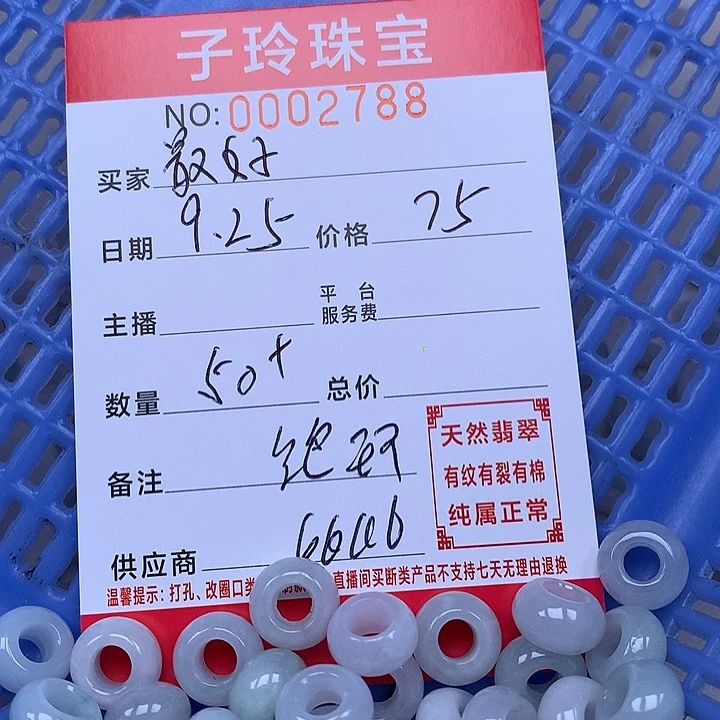 子玲珠宝
NO:0002788
买家
日期 9.25 价格 75
主播 平台服务费
数量 50+ 总价
备注
天然翡翠
有纹有裂有棉
纯属正常
供应商
温馨提示：打孔、改圈口类 直播间买断类产品不支持七天无理由退换